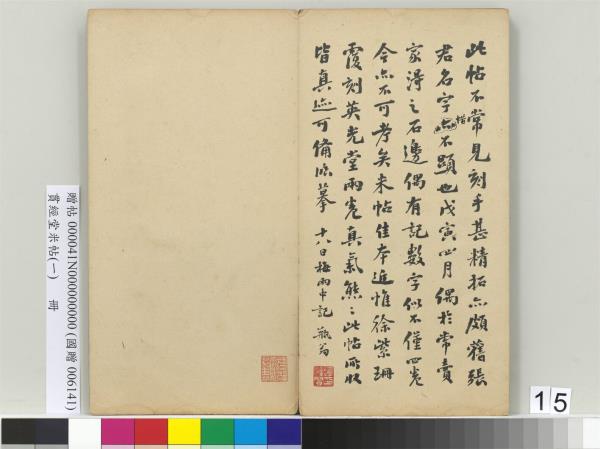 此帖不常見刻手甚精拓亦頗舊張
君名字亦不顯也戊寅四月偶於常賣
惜
家得之石邊偶有記數字似不僅四卷
今亦不可考矣米帖佳本近惟徐紫珊
覆刻英光堂兩卷真氣熊〻此帖所收
皆真迹可備臨摹 十八日梅雨中記 瓶翁
贈帖 000041N000000000 (國贈 006141)
貫經堂米帖(一) 冊
15